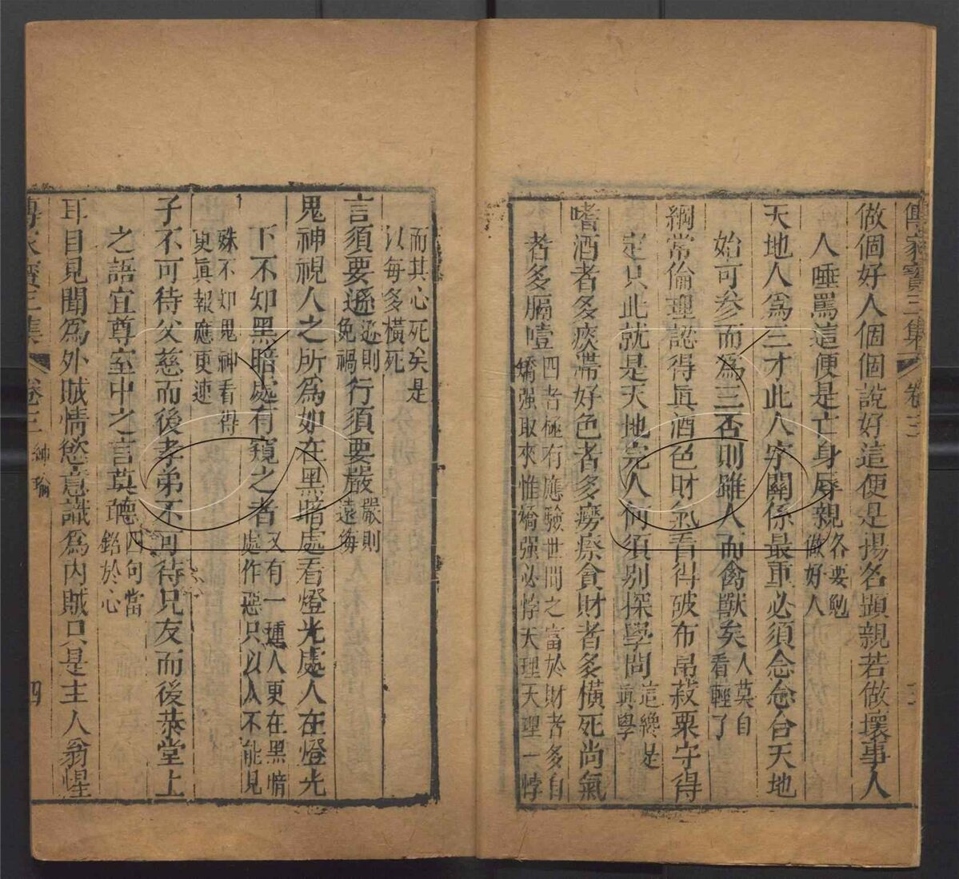 傳家寶三集 卷三 三
做個好人個個說好這便是揚名顯親若做壞事人
人唾罵這便是亡身辱親 各要勉做好人
天地人爲三才此人字關係最重必須念念合天地
始可參而爲三否則雖人而禽獸矣 人莫自看輕了
綱常倫理認得眞酒色財氣看得破布帛菽粟守得
定只此就是天地完人何須別探學問 這纔是眞學
嗜酒者多痰滯好色者多癆瘵貪財者多橫死尚氣
者多膈噎 四者極有應驗世間之富於財者多自矯强取來惟矯强必悖天理天理一悖
而其心死矣是以每多橫死
言須要遜 遜則免禍 行須要嚴 嚴則遠侮
鬼神視人之所爲如在黑暗處看燈光處人在燈光
下不如黑暗處有窺之者 又有一種人更在黑暗處作惡只以人不能見
殊不知鬼神看得更眞報應更速
子不可待父慈而後孝弟不可待兄友而後恭堂上
之語宜尊室中之言莫聽 四句當銘於心
耳目見聞爲外賊情慾意識爲內賊只是主人翁惺
傳家寶三集 卷三 四